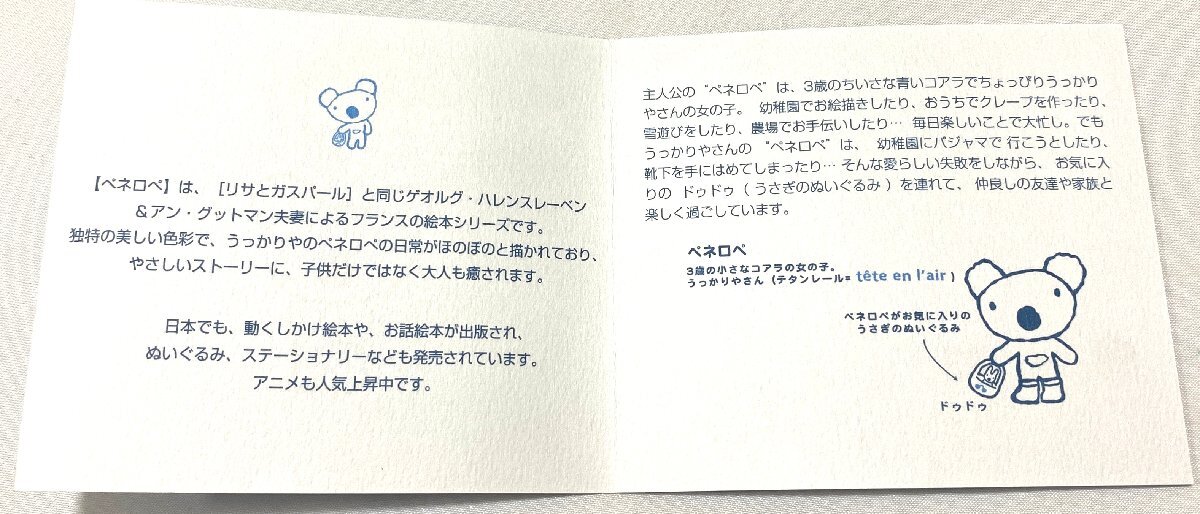 【ペネロペ】は、［リサとガスパール］と同じゲオルグ・ハレンスレーベン
＆アン・グットマン夫妻によるフランスの絵本シリーズです。
独特の美しい色彩で、うっかりやのペネロペの日常がほのぼのと描かれており、
やさしいストーリーに、子供だけではなく大人も癒されます。
日本でも、動くしかけ絵本や、お話絵本が出版され、
ぬいぐるみ、ステーショナリーなども発売されています。
アニメも人気上昇中です。
主人公の “ペネロペ” は、3歳のちいさな青いコアラでちょっぴりうっかり
やさんの女の子。 幼稚園でお絵描きしたり、おうちでクレープを作ったり、
雪遊びをしたり、農場でお手伝いしたり… 毎日楽しいことで大忙し。でも
うっかりやさんの “ペネロペ” は、 幼稚園にパジャマで 行こうとしたり、
靴下を手にはめてしまったり… そんな愛らしい失敗をしながら、 お気に入
りの ドゥドゥ（ うさぎのぬいぐるみ ）を連れて、 仲良しの友達や家族と
楽しく過ごしています。
ペネロペ
3歳の小さなコアラの女の子。
うっかりやさん（テタンレール= tête en l'air ）
ペネロペがお気に入りの
うさぎのぬいぐるみ
ドゥドゥ